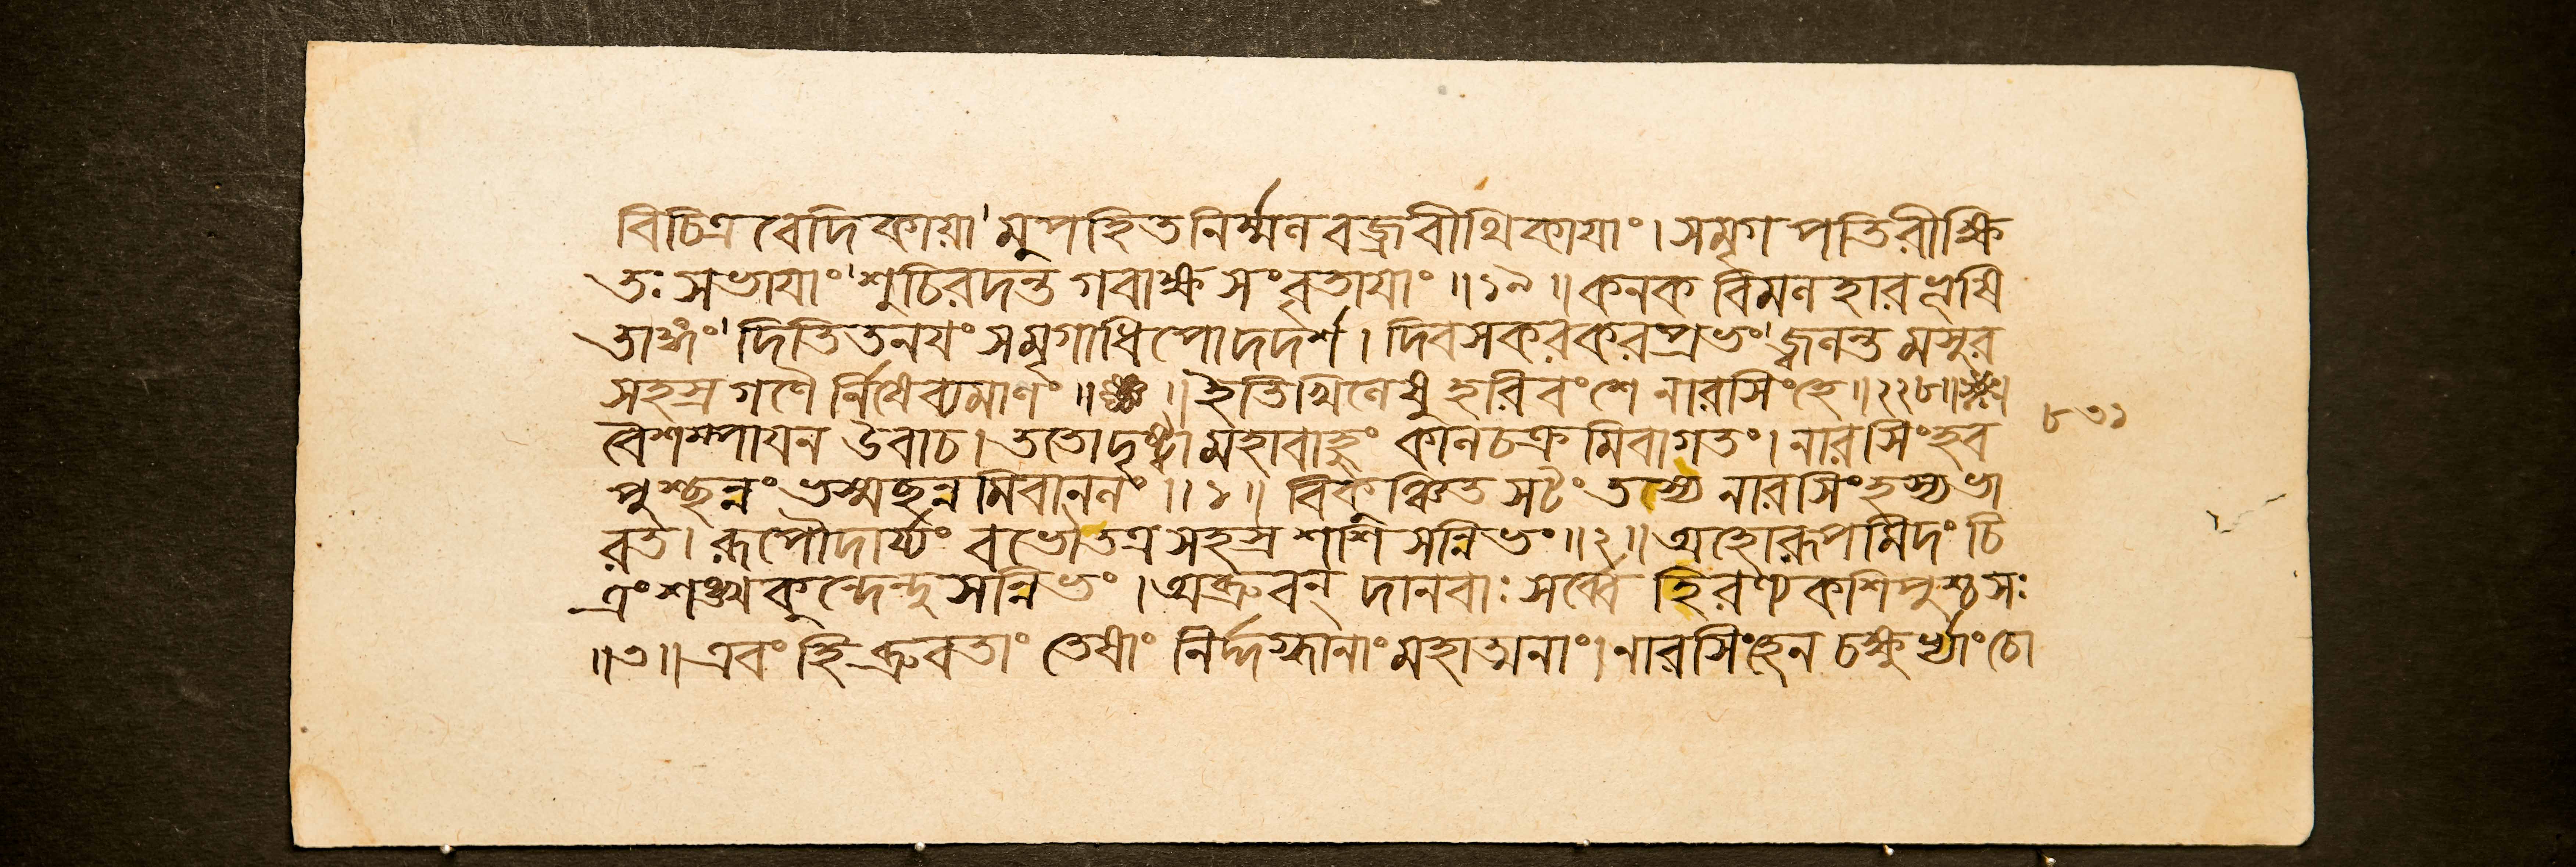 বিচিত্রবেদিকায়া'মুপহিতনির্ম্মলবজ্রবীথিকায়াং। সমৃগপতিরীক্ষি
তঃ সভায়াং'শুচিরদন্তগবাক্ষসংবৃতায়াং॥১৯॥ কনকবিমলহারভূষি
তাঙ্গং'দিতিতনয়ং সমৃগাধিপোদদর্শ। দিবসকরকরপ্রভং'জ্বলন্তমসুর
সহস্রগণৈর্নিষেব্যমাণং॥ ॥ইতিখিলেষুহরিবংশে নারসিংহে॥২২৮॥
বৈশম্পায়ন উবাচ। ততোদৃষ্ট্বা মহাবাহুং কালচক্রমিবাগতং। নারসিংহব
পুশ্ছন্নং ভস্মছন্নমিবানলং॥১॥ বিকুঞ্চিতসটং তস্য নারসিংহস্যভা
রত। রূপৌদার্য্যং বভৌতত্র সহস্রশশিসন্নিভং॥২॥ অহোরূপমিদং চি
ত্রং শঙ্খকুন্দেন্দুসন্নিভং। অব্রুবন্ দানবাঃ সর্ব্বে হিরণ্যকশিপুশ্চসঃ
॥৩॥ এবং হি ব্রুবতাং তেষাং নির্দ্দগ্ধানাং মহাত্মনাং। নারসিংহেন চক্ষুর্ভ্যাং চো
৮৩১